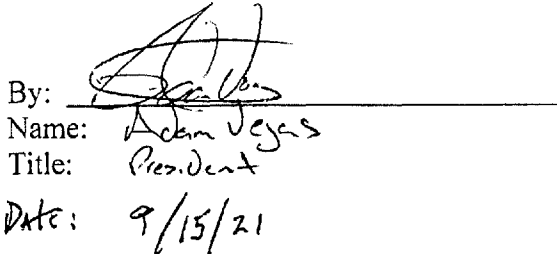 By:
Name: Adam Vegas
Title: President
DATE: 9/15/21